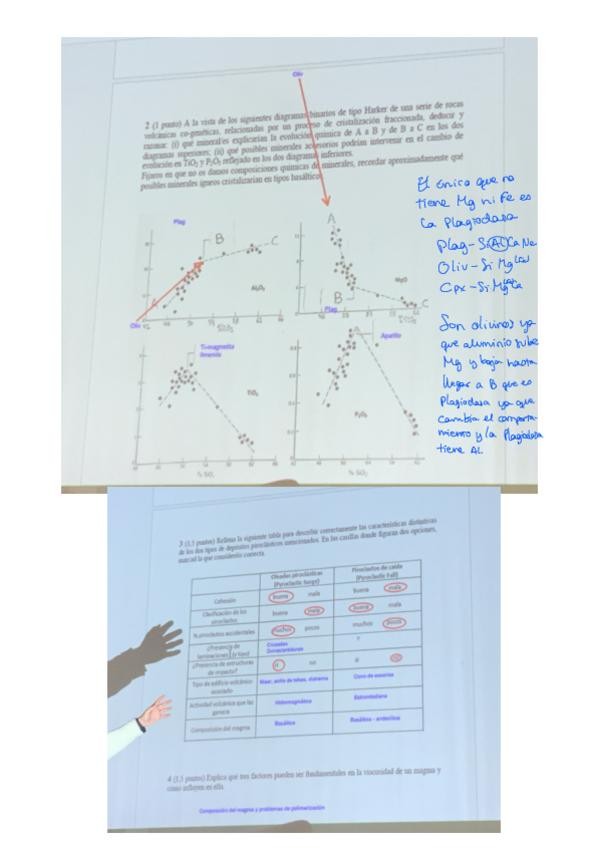 Oliv
2 (1 punto) A la vista de los siguientes diagramas binarios de tipo Harker de una serie de rocas
volcánicas co-genéticas, relacionadas por un proceso de cristalización fraccionada, deducir y
razonar: (i) qué mineral explicarían la evolución química de A a B y de B a C en los dos
diagramas superiores; (ii) qué posibles minerales accesorios podrían intervenir en el cambio de
evolución en TiO2 y P2O5 reflejado en los dos diagramas inferiores.
Fijaros en que no os damos composiciones químicas de minerales, recordar aproximadamente qué
posibles minerales ígneos cristalizarían en tipos basálticos
El único que no
tiene Mg ni Fe es
la Plagioclasa
Plag - Si Al Ca Na
Oliv - Si Mg
Cpx - Si Mg Ca
Son olivinos ya
que aluminio sube
Mg y baja hasta
llegar a B que es
Plagioclasa ya que
cambia el comporta-
miento y la Plagioclasa
tiene Al.
Plag
B
C
A
Al2O3
Oliv
A
MgO
B
C
Plag
Ti-magnetita
Ilmenita
TiO2
% SiO2
Apatito
P2O5
% SiO2
3 (1,5 puntos) Rellena la siguiente tabla para describir correctamente las características distintivas
de los dos tipos de depósitos piroclásticos mencionados. En las casillas donde figuran dos opciones,
marcad la que consideréis correcta.
Oleadas piroclásticas
(Pyroclastic Surge)
Piroclastos de caída
(Pyroclastic Fall)
Cohesión
buena mala
buena mala
Clasificación de los
piroclastos
buena mala
buena mala
N. piroclastos accidentales
muchos pocos
muchos pocos
¿Presencia de
laminaciones? (y tipo)
Cruzadas
¿Presencia de estructuras
de impacto?
si no
si
Tipo de edificio volcánico
asociado
Maar, anillo de tobas, diatrema
Cono de escorias
Actividad volcánica que las
genera
Hidromagmática
Estromboliana
Composición del magma
Basáltica
Basáltica - andesítica
4 (1,5 puntos) Explica qué tres factores pueden ser fundamentales en la viscosidad de un magma y
cómo influyen en ella.
Composición del magma y problemas de polimerización